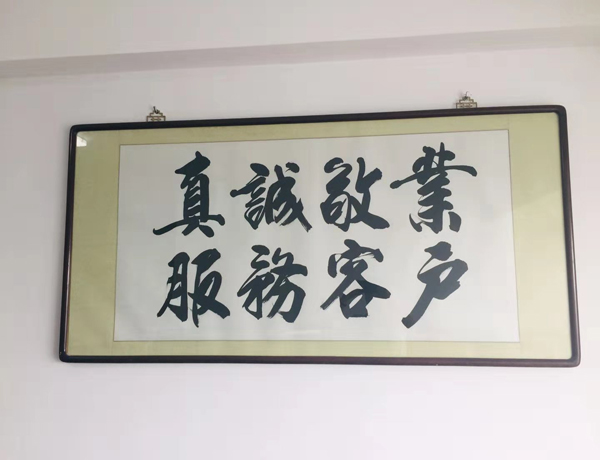 真誠敬業
服務客戶